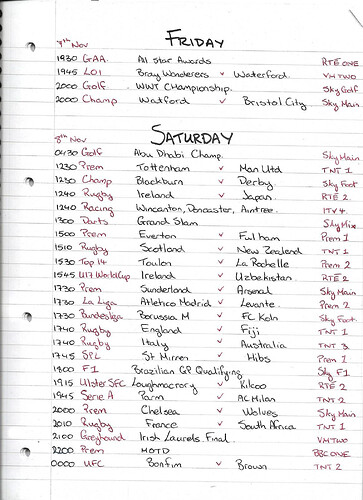 7th Nov FRIDAY
1930 GAA All Star Awards RTE ONE
1945 LOI Bray Wanderers v Waterford VM TWO
2000 Golf WWT Championship Sky Golf
2000 Champ Watford v Bristol City Sky Main
8th Nov SATURDAY
0430 Golf Abu Dhabi Champ. Sky Main
1230 Prem Tottenham v Man Utd TNT 1
1230 Champ Blackburn v Derby Sky Foot
1240 Rugby Ireland v Japan RTE 2
1240 Racing Wincanton, Doncaster, Aintree. ITV 4
1300 Darts Grand Slam Sky Mix
1500 Prem Everton v Fulham Prem 1
1510 Rugby Scotland v New Zealand TNT 1
1530 Top 14 Toulon v La Rochelle Prem 2
1545 U17 World Cup Ireland v Uzbekistan RTE 2
1730 Prem Sunderland v Arsenal Sky Main
1730 La Liga Atletico Madrid v Levante Prem 2
1730 Bundesliga Borussia M v FC Koln Sky Foot
1740 Rugby England v Fiji TNT 1
1740 Rugby Italy v Australia TNT 3
1745 SPL St Mirren v Hibs Prem 1
1800 F1 Brazilian GP Qualifying Sky F1
1915 Ulster SFC Loughmacrory v Kilcoo RTE 2
1945 Serie A Parm v AC Milan TNT 2
2000 Prem Chelsea v Wolves Sky Main
2010 Rugby France v South Africa TNT 1
2100 Greyhound Irish Laurels Final VM TWO
2200 Prem MOTD BBC ONE
0000 UFC Bonfim v Brown TNT 2